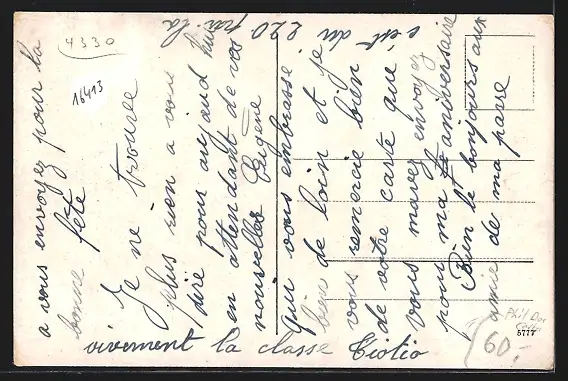 4330
16413
a vous envoyez pour la
bonne fête
Je ne trouve
plus rien a vous
dire pour aujourd hui
en attendant de vos
nouvelles Eugène
qui vous embrasse
bien de loin et je
vous remercie bien
de votre carte que
vous mavez envoyez
pour ma te aniversaire
Bien le bonjours aux
amie de ma parre
c'est du 220 par la
vivement la classe Tiotio
5777
60.-